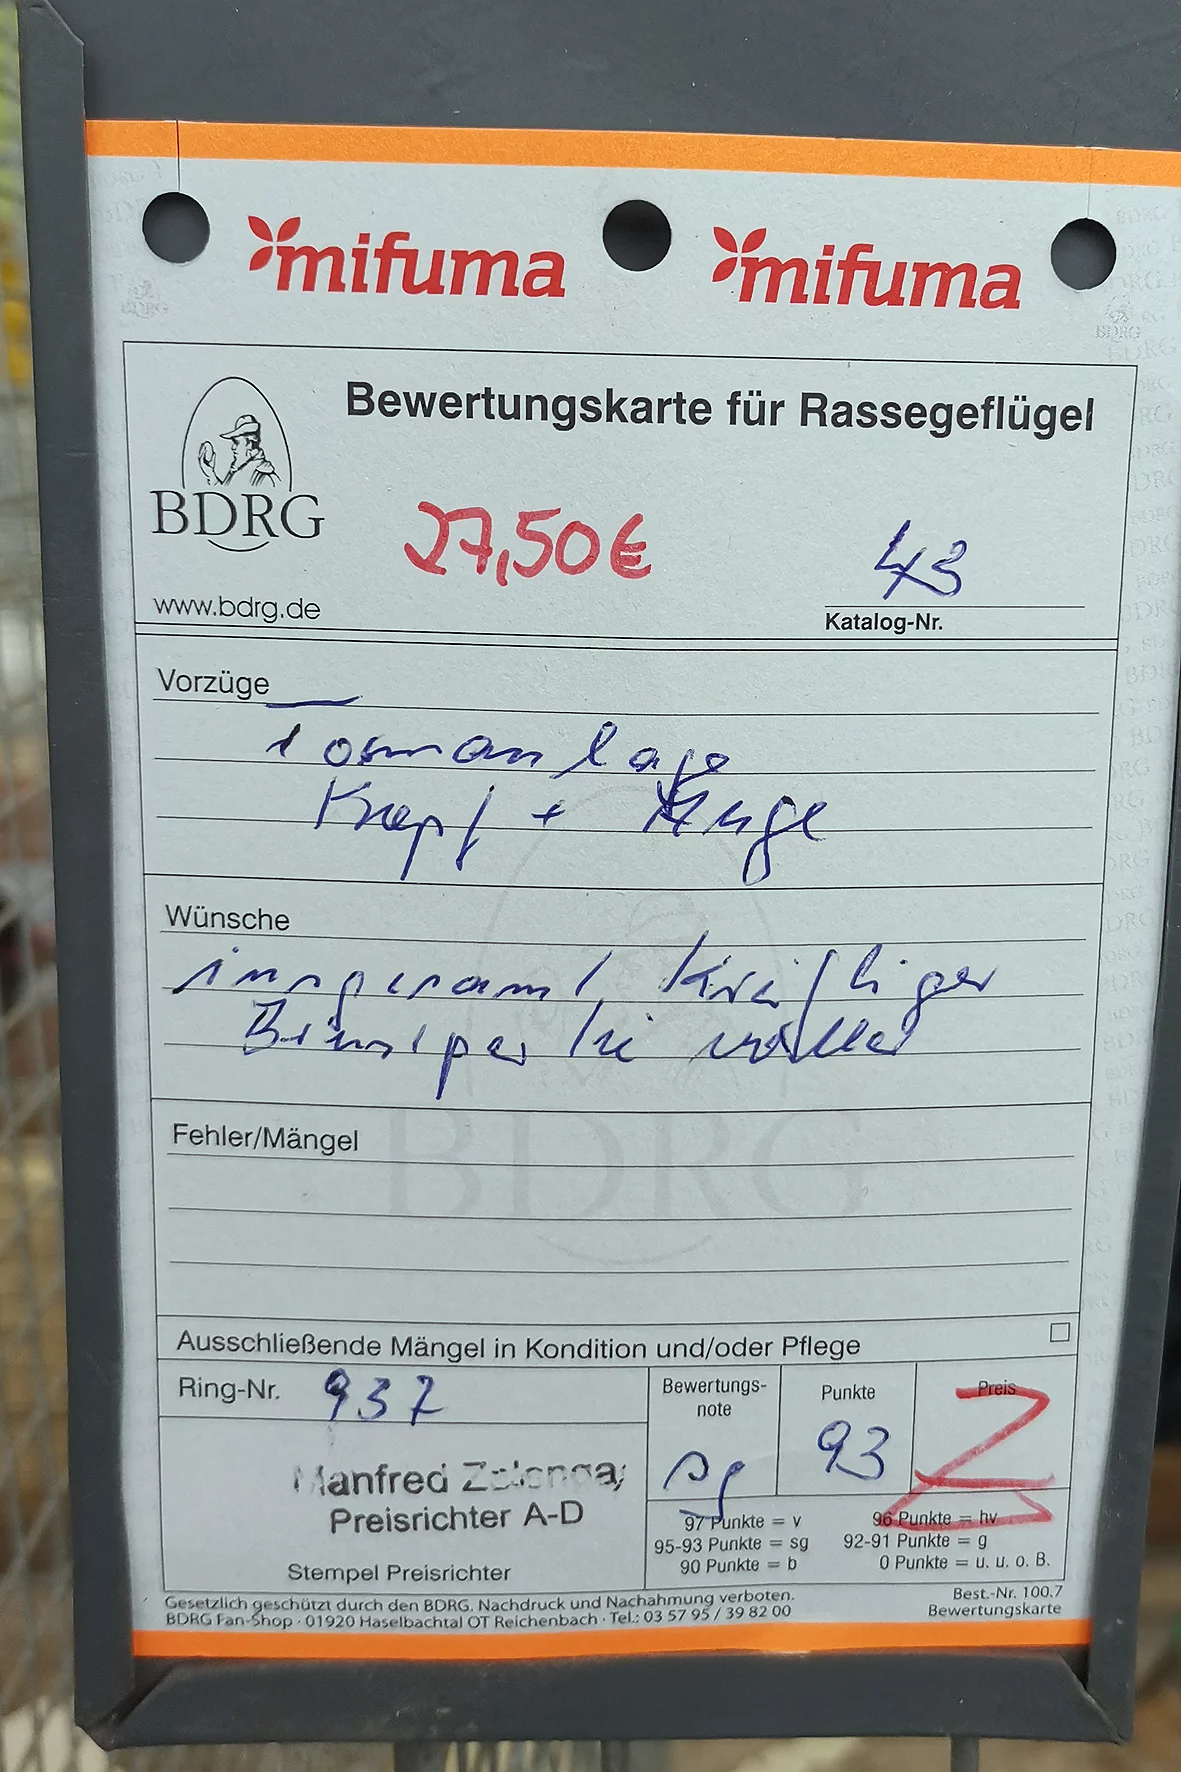 mifuma mifuma
Bewertungskarte für Rassegeflügel
BDRG
27,50€
43
www.bdrg.de
Katalog-Nr.
Vorzüge
Formanlage
Kopf + Auge
Wünsche
insgesamt kräftiger
Brustpartie voller
Fehler/Mängel
BDRG
Ausschließende Mängel in Kondition und/oder Pflege
Ring-Nr. 937
Bewertungs-
note
sg
Punkte
93
Preis
Z
Manfred
Preisrichter A-D
Stempel Preisrichter
97 Punkte = v 96 Punkte = hv
95-93 Punkte = sg 92-91 Punkte = g
90 Punkte = b 0 Punkte = u. u. o. B.
Gesetzlich geschützt durch den BDRG. Nachdruck und Nachahmung verboten.
BDRG Fan-Shop · 01920 Haselbachtal OT Reichenbach · Tel.: 03 57 95 / 39 82 00
Best.-Nr. 100.7
Bewertungskarte